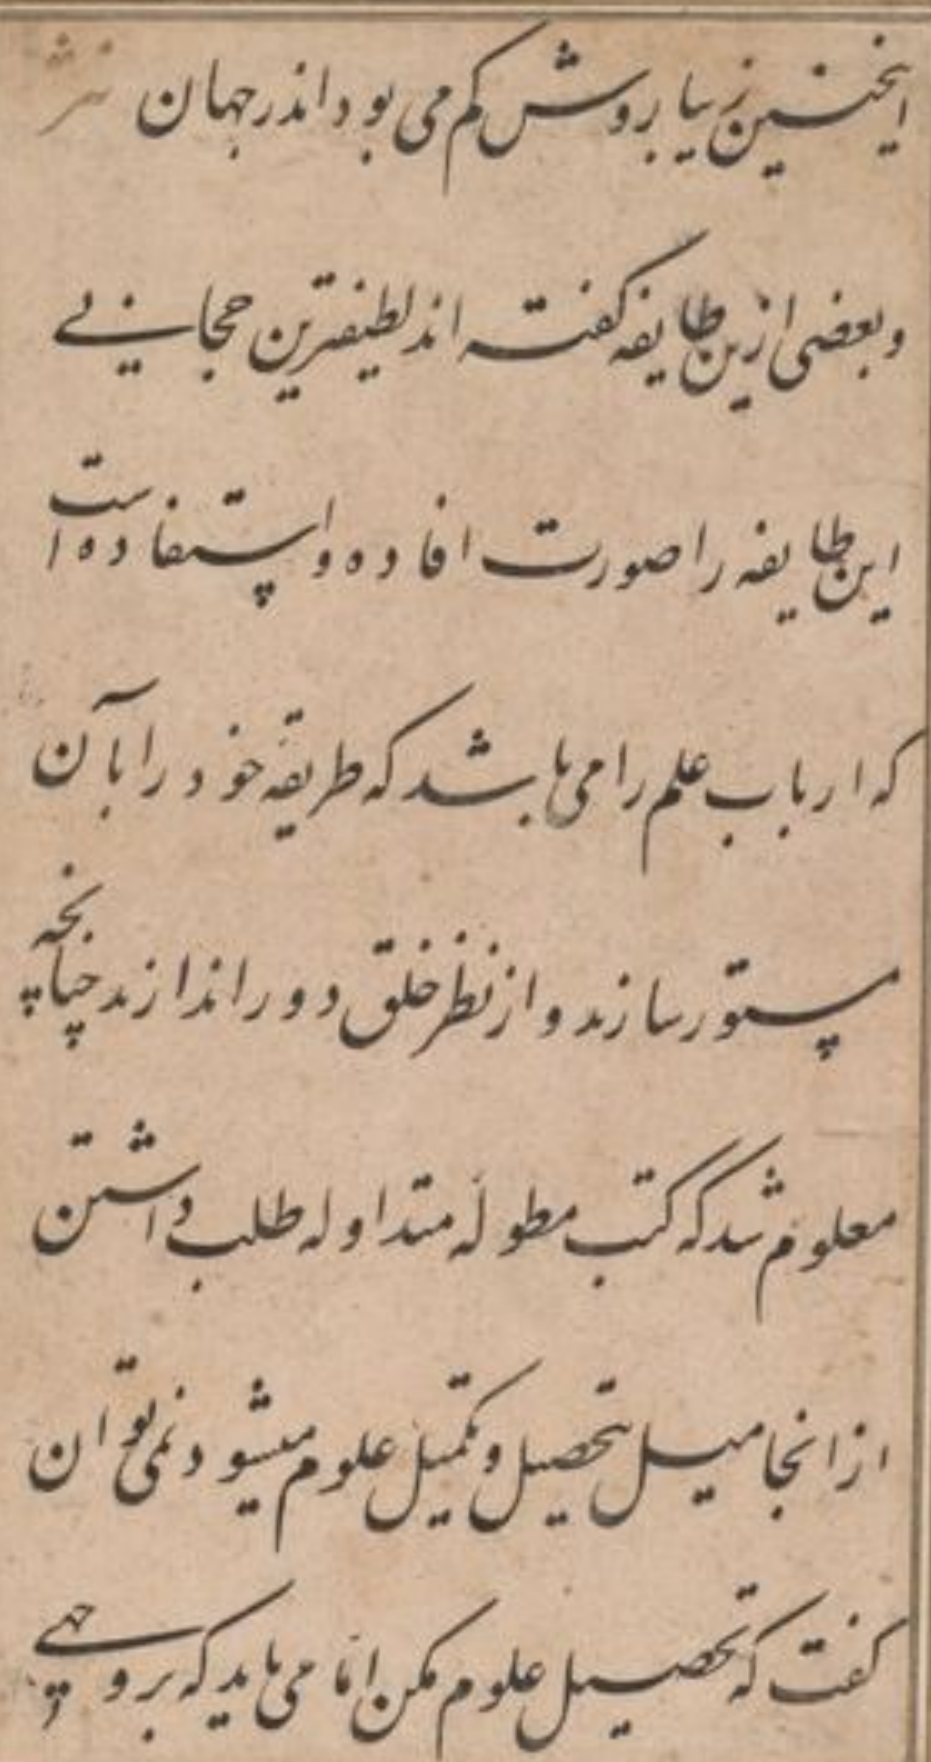 اینچنین زیبا روش کم می بود اندر جهان نثر
و بعضی از این طایفه گفته اند لطیفترین حجابی
این طایفه را صورت افاده و استفاده است
که ارباب علم را می باشد که طریقه خود را بآن
مستور سازند و از نظر خلق دور اندازند چنانچه
معلوم شد که کتب مطوله متداوله طلب داشتن
از انجا میل تحصیل و تکمیل علوم میشود نمی توان
گفت که تحصیل علوم مکن اما می باید که بر وجهی